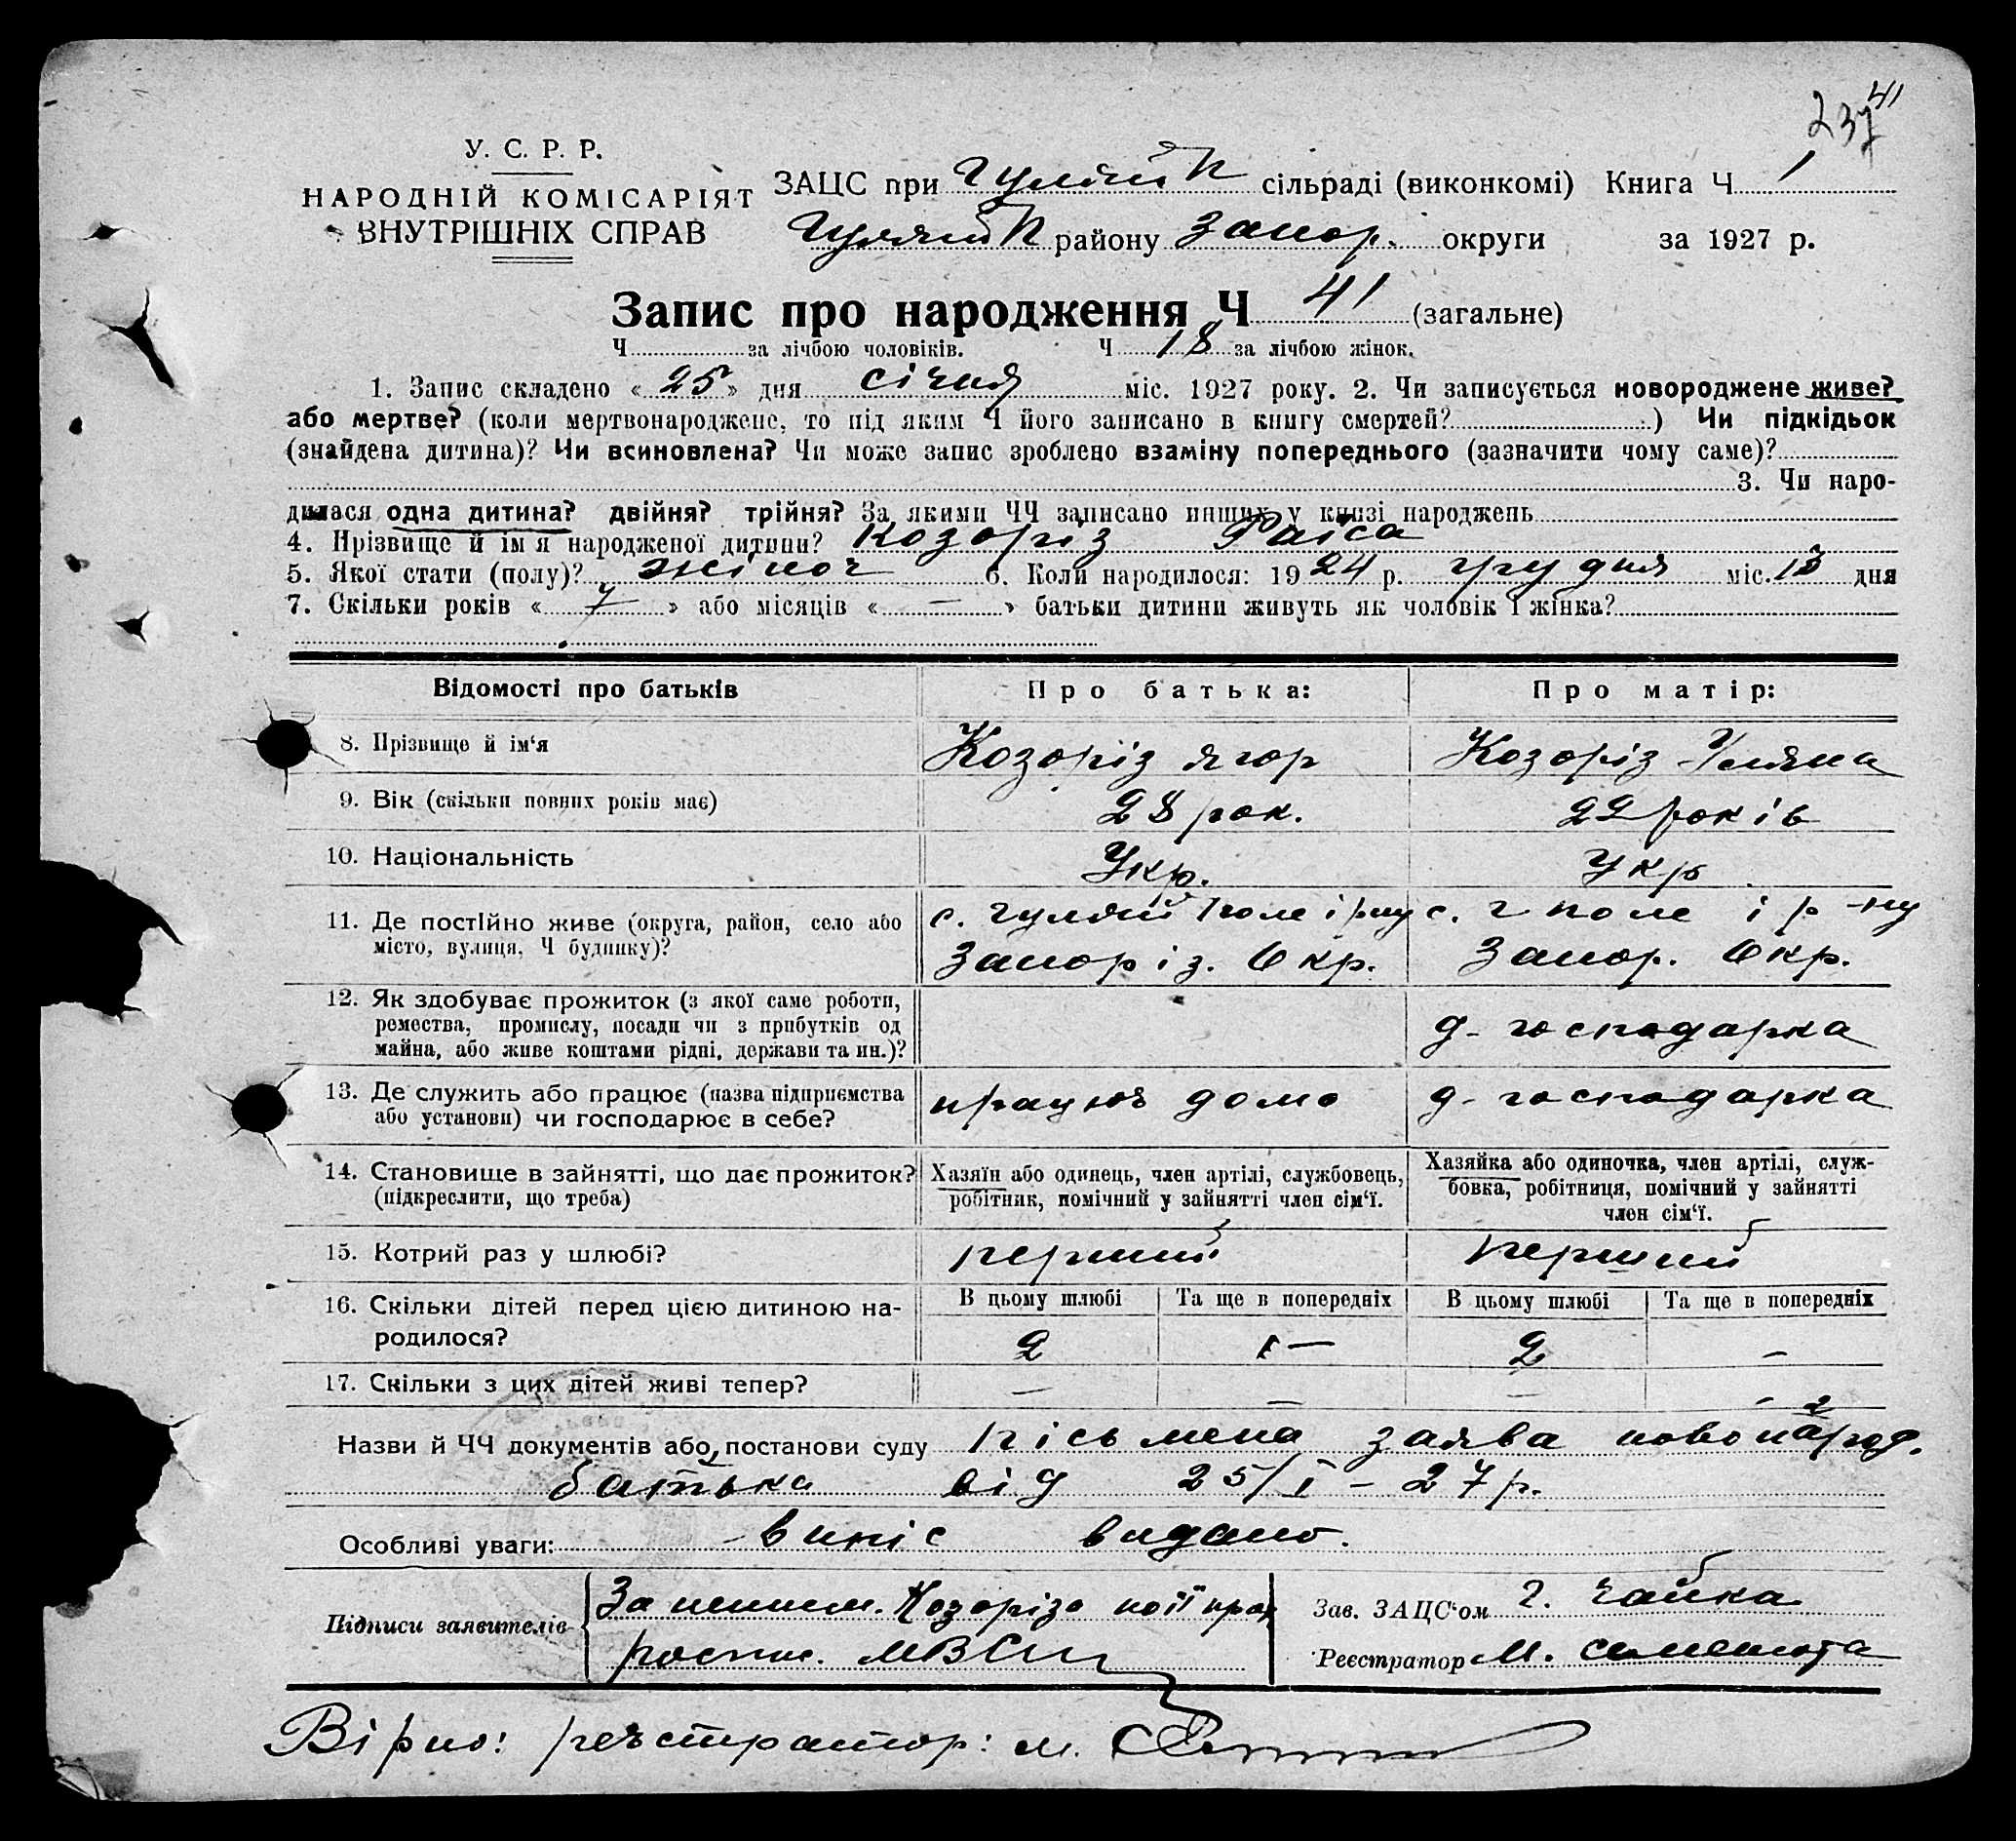 41
237
У. С. Р. Р.
НАРОДНІЙ КОМІСАРІЯТ
ВНУТРІШНІХ СПРАВ
ЗАЦС при Гуляй П сільраді (виконкомі) Книга Ч 1
Гуляй П району Запор. округи за 1927 р.
Запис про народження Ч 41 (загальне)
Ч за лічбою чоловіків. Ч 18 за лічбою жінок.
1. Запис складено « 25 » дня січня міс. 1927 року. 2. Чи записується новороджене живе?
або мертве? (коли мертвонароджене, то під яким Ч його записано в книгу смертей? ) Чи підкідьок
(знайдена дитина)? Чи всиновлена? Чи може запис зроблено взаміну попереднього (зазначити чому саме)?
3. Чи наро-
дилася одна дитина? двійня? трійня? За якими ЧЧ записано инших у книзі народжень
4. Прізвище й ім'я народженої дитини? Козоріз Раїса
5. Якої стати (полу)? жіноч 6. Коли народилося: 1924 р. грудня міс. 13 дня
7. Скільки років « 7 » або місяців « — » батьки дитини живуть як чоловік і жінка?
Відомості про батьків Про батька: Про матір:
8. Прізвище й ім'я Козоріз Ягор Козоріз Уляна
9. Вік (скільки повних років має) 28 рок. 22 років
10. Національність Укр. Укр
11. Де постійно живе (округа, район, село або місто, вулиця, Ч будинку)? с. Гуляй Поле і рну Запоріз. Окр. с. Г Поле і р-ну Запор. Окр.
12. Як здобуває прожиток (з якої саме роботи, ремества, промислу, посади чи з прибутків од майна, або живе коштами рідні, держави та ин.)? д-господарка
13. Де служить або працює (назва підприємства або установи) чи господарює в себе? працює домо д-господарка
14. Становище в зайнятті, що дає прожиток? (підкреслити, що треба) Хазяїн або одинець, член артілі, службовець, робітник, помічний у зайнятті член сім'ї. Хазяйка або одиночка, член артілі, служ-бовка, робітниця, помічний у зайнятті член сім'ї.
15. Котрий раз у шлюбі? перший перший
16. Скільки дітей перед цією дитиною на-родилося? В цьому шлюбі Та ще в попередніх В цьому шлюбі Та ще в попередніх
2 — 2 —
17. Скільки з цих дітей живі тепер? — — — —
Назви й ЧЧ документів або постанови суду пісьмена заява новонарод.
батька від 25/I – 27 р.
Особливі уваги: випіс видано.
Підписи заявителів За Козоріза
роспис.
Зав. ЗАЦС'ом Г. Чайка
Реєстратор М.
Вірно: реєстратор: м.